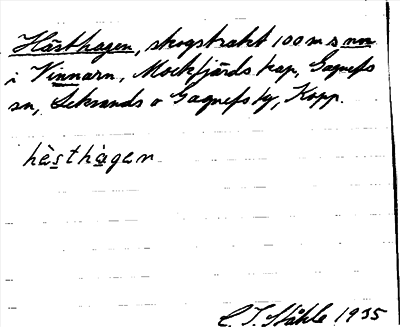 Hästhagen, skogstrakt 100 m s
i Vinnarn, Mockfjärds kap, Gagnefs
sn, Leksands o Gagnefs tg, Kopp.
hästhagen
C. I. Ståhle 1935